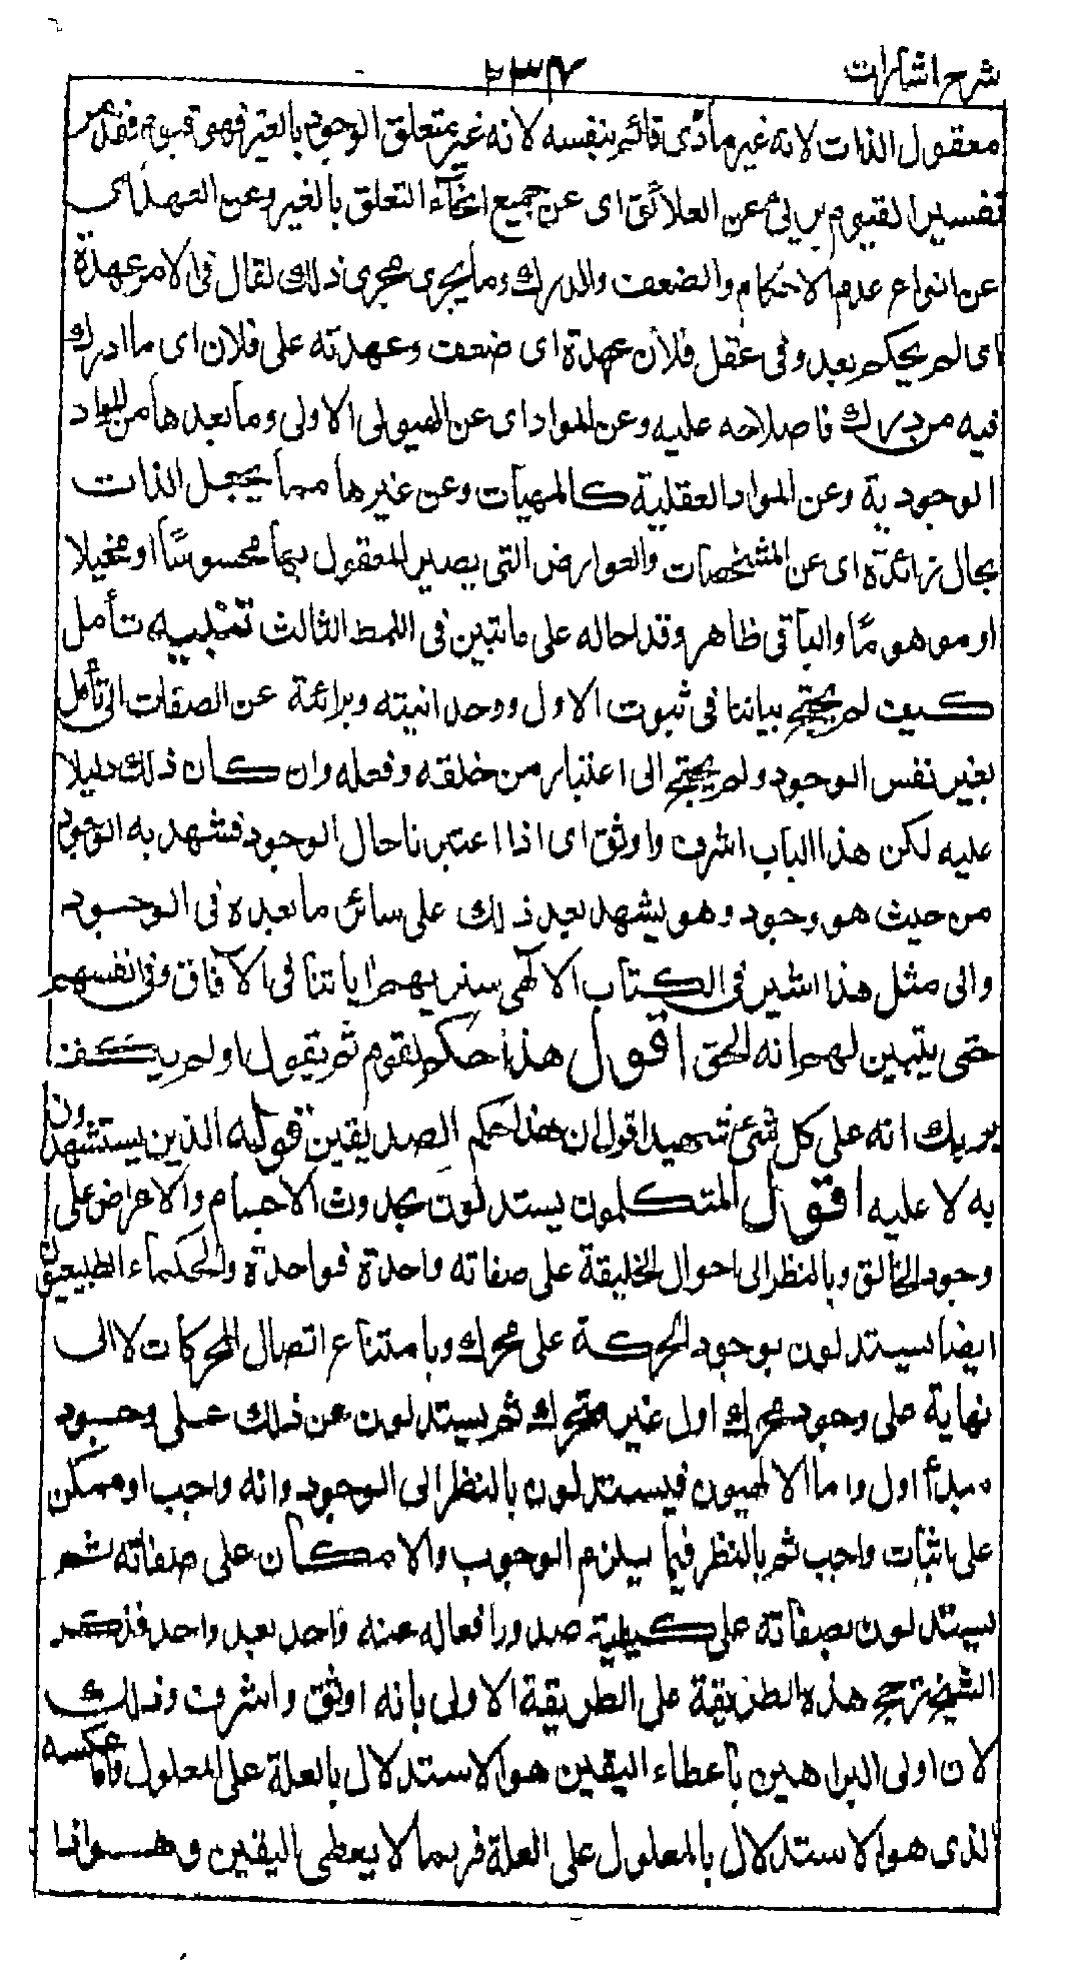 شرح اشارات
٢٣٧
معقول الذات لانه غير مادى قائم بنفسه لانه غير متعلق الوجود بالغير فهو قيوم فقد مر
تفسير القيوم برىئ عن العلائق اى عن جميع انحآء التعلق بالغير وعن العهد اى
عن انواع عدم الاحكام والضعف والدرك وما يجرى مجرى ذلك لقال فى الامر عهدة
اى لم يحكم بعد وفى عقل فلان عهدة اى ضعف وعهدته على فلان اى ما ادرك
فيه من درك فاصلاحه عليه وعن المواد اى عن الهيولى الاولى وما بعدها من المواد
الوجودية وعن المواد العقلية كالمهيات وعن غيرها مما يجعل الذات
بحال زائدة اى عن المشخصات والعوارض التى يصير المعقول بها محسوسًا او مخيلا
او موهومًا والباقى ظاهر وقد احاله على ما تبين فى النمط الثالث تنبيه تأمل
كيف لم يحتج بياننا فى ثبوت الاول ووحدانيته وبرائة عن الصفات الى تأمل
لغير نفس الوجود ولم يحتج الى اعتبار من خلقه وفعله وان كان ذلك دليلا
عليه لكن هذا الباب اشرف واوثق اى اذا اعتبرنا حال الوجود فشهد به الوجود
من حيث هو وجود وهو يشهد بعد ذلك على سائر ما بعده فى الوجود
والى مثل هذا اشير فى الكتاب الالهى سنريهم اياتنا فى الآفاق وفى انفسهم
حتى يتبين لهم انه الحق اقول هذا حكم لقوم ثم يقول او لم يكف
بربك انه على كل شئ شهيد اقول ان هذا حكم الصديقين قوله الذين يستشهدون
به لا عليه اقول المتكلمون يستدلون بحدوث الاجسام والاعراض على
وجود الخالق وبالنظر الى احوال الخليقة على صفاته واحدة فواحدة والحكماء الطبيعيون
ايضا يستدلون بوجود الحركة على محرك وبامتناع اتصال المحركات لا الى
نهاية على وجود محرك اول غير متحرك ثم يستدلون من ذلك على وجود
مبدأ اول واما الالهيون فيستدلون بالنظر الى الوجود وانه واجب او ممكن
على اثبات واجب ثم بالنظر فيما يلزم الوجوب والامكان على صفاته ثم
يستدلون بصفاته على كيفية صدور افعاله عنه واحد بعد واحد فذكر
الشيخ ترجيح هذه الطريقة على الطريقة الاولى بانه اوثق واشرف وذلك
لان اولى البراهين بأعطاء اليقين هو الاستدلال بالعلة على المعلول واما عكسه
الذى هو الاستدلال بالمعلول على العلة فربما لا يعطى اليقين وهو اذا